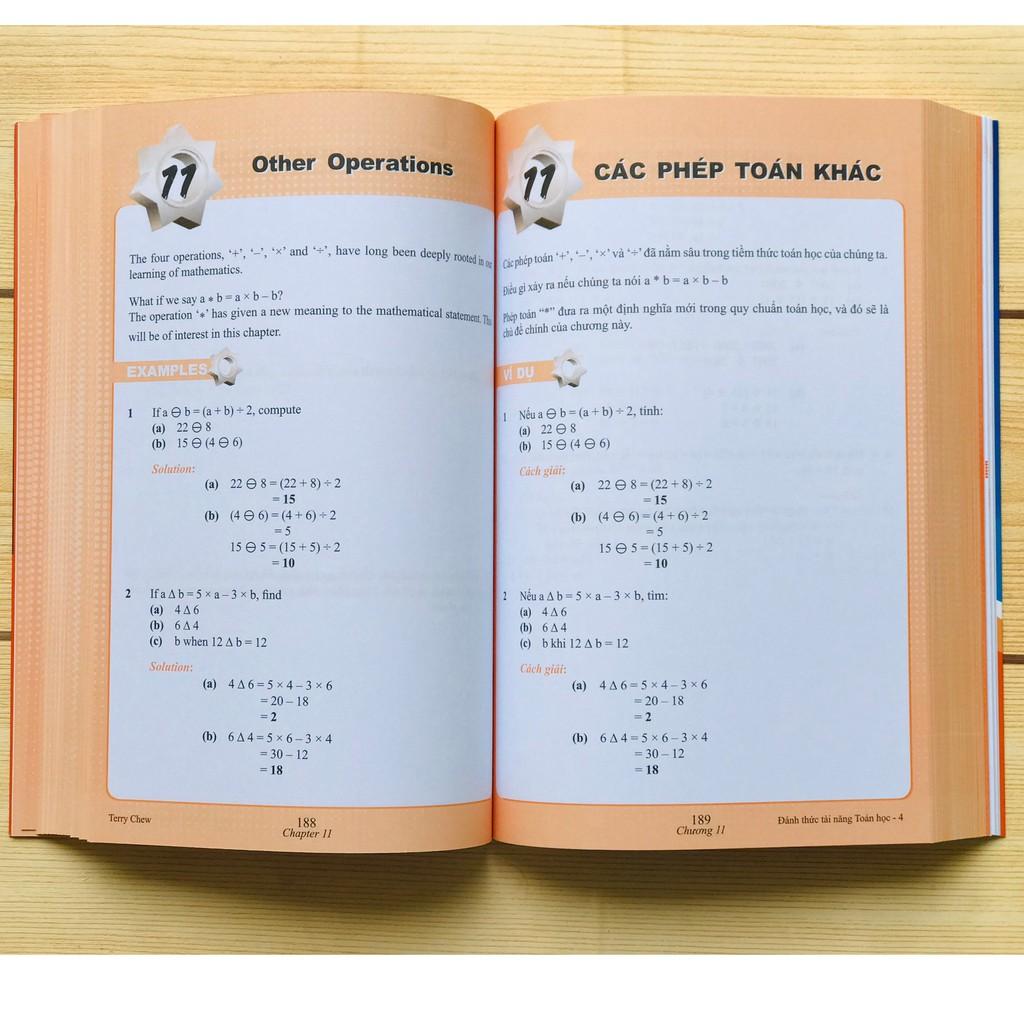 11
Other Operations
The four operations, ‘+’, ‘–’, ‘×’ and ‘÷’, have long been deeply rooted in our
learning of mathematics.
What if we say a * b = a × b – b?
The operation ‘*’ has given a new meaning to the mathematical statement.
will be of interest in this chapter.
EXAMPLES
1 If a ⊖ b = (a + b) ÷ 2, compute
(a) 22 ⊖ 8
(b) 15 ⊖ (4 ⊖ 6)
Solution:
(a) 22 ⊖ 8 = (22 + 8) ÷ 2
= 15
(b) (4 ⊖ 6) = (4 + 6) ÷ 2
= 5
15 ⊖ 5 = (15 + 5) ÷ 2
= 10
2 If a Δ b = 5 × a – 3 × b, find
(a) 4 Δ 6
(b) 6 Δ 4
(c) b when 12 Δ b = 12
Solution:
(a) 4 Δ 6 = 5 × 4 – 3 × 6
= 20 – 18
= 2
(b) 6 Δ 4 = 5 × 6 – 3 × 4
= 30 – 12
= 18
Terry Chew
188
Chapter 11
11
CÁC PHÉP TOÁN KHÁC
Các phép toán ‘+’, ‘–’, ‘×’ và ‘÷’ đã nằm sâu trong tiềm thức toán học của chúng ta.
Điều gì xảy ra nếu chúng ta nói a * b = a × b – b
Phép toán “*” đưa ra một định nghĩa mới trong quy chuẩn toán học, và đó sẽ là
chủ đề chính của chương này.
VÍ DỤ
1 Nếu a ⊖ b = (a + b) ÷ 2, tính:
(a) 22 ⊖ 8
(b) 15 ⊖ (4 ⊖ 6)
Cách giải:
(a) 22 ⊖ 8 = (22 + 8) ÷ 2
= 15
(b) (4 ⊖ 6) = (4 + 6) ÷ 2
= 5
15 ⊖ 5 = (15 + 5) ÷ 2
= 10
2 Nếu a Δ b = 5 × a – 3 × b, tìm:
(a) 4 Δ 6
(b) 6 Δ 4
(c) b khi 12 Δ b = 12
Cách giải:
(a) 4 Δ 6 = 5 × 4 – 3 × 6
= 20 – 18
= 2
(b) 6 Δ 4 = 5 × 6 – 3 × 4
= 30 – 12
= 18
189
Chương 11
Đánh thức tài năng Toán học - 4